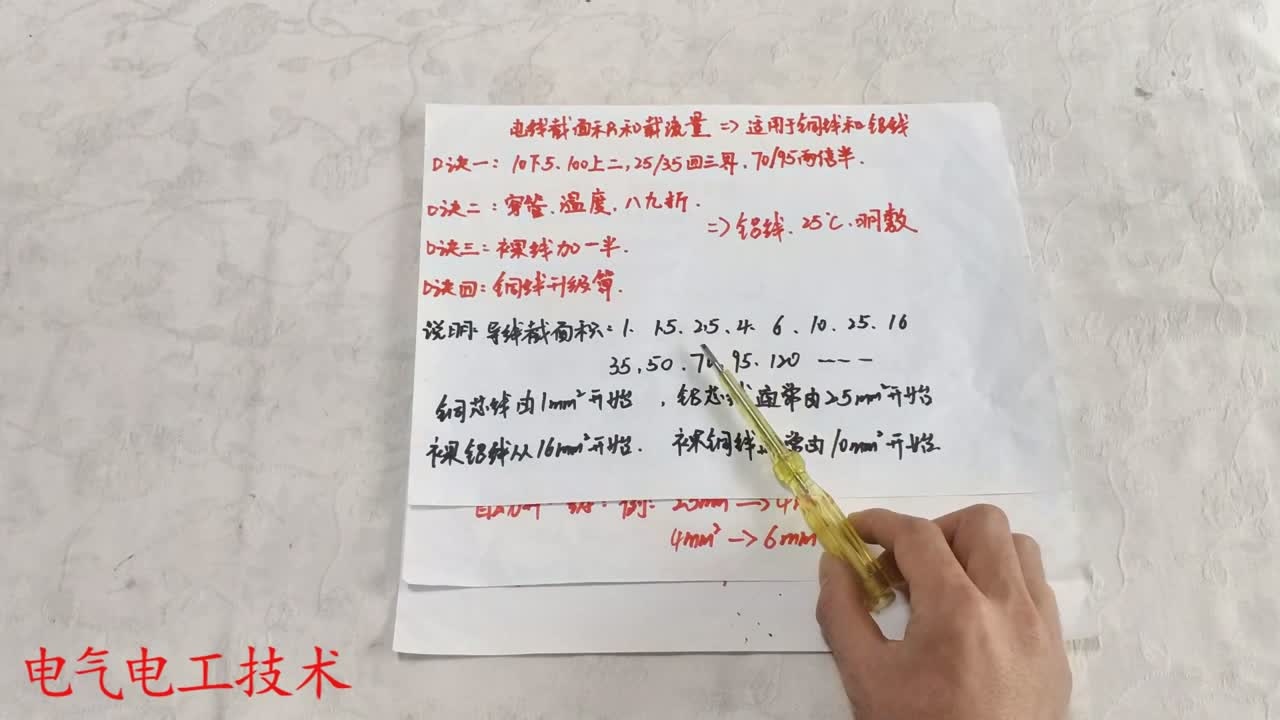 电线截面积和载流量 => 适用于铜线和铝线
口诀一：10下5、100上二，25/35四三界、70/95两倍半.
口诀二：穿管、温度、八九折.
=> 铝线、25℃、明敷
口诀三：裸线加一半.
口诀四：铜线升级算.
说明：导线截面积：1. 1.5、2.5、4. 6、10、25、16
35、50、70、95、120 ----
铜芯线由1mm²开始，铝芯线通常由25mm²开始
裸铝线从16mm²开始. 裸铜线通常由10mm²开始.
例：
4mm² -> 6mm
电气电工技术